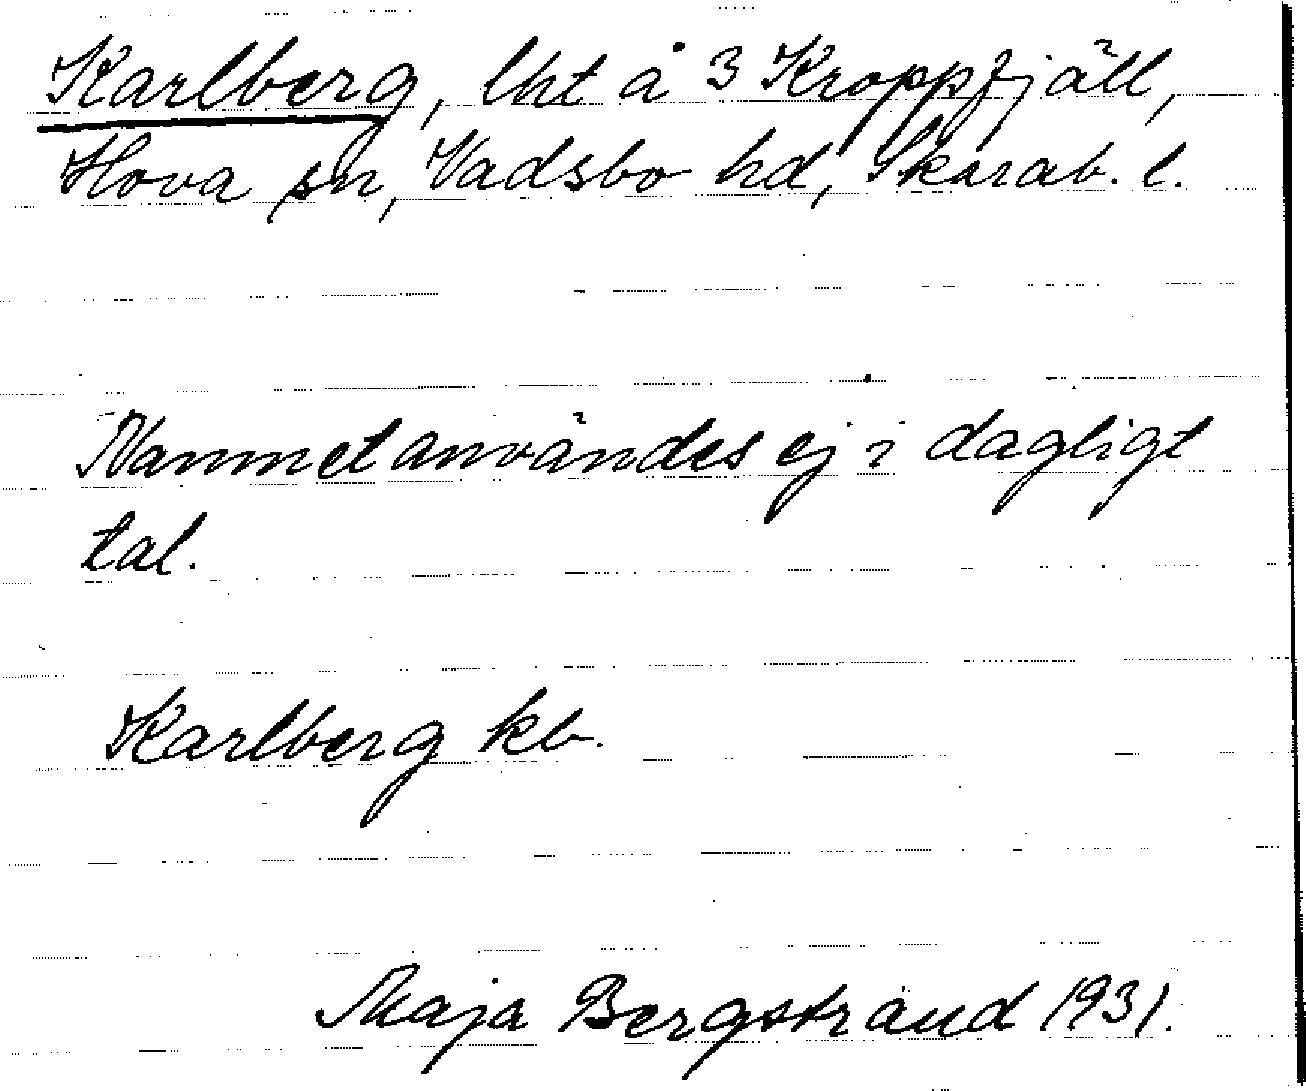 Karlberg, lht å 3 Kroppfjäll,
Hova sn, Vadsbo hd, Skarab. l.
Namnet användes ej i dagligt
tal.
Karlberg kb.
Maja Bergstrand 1931.